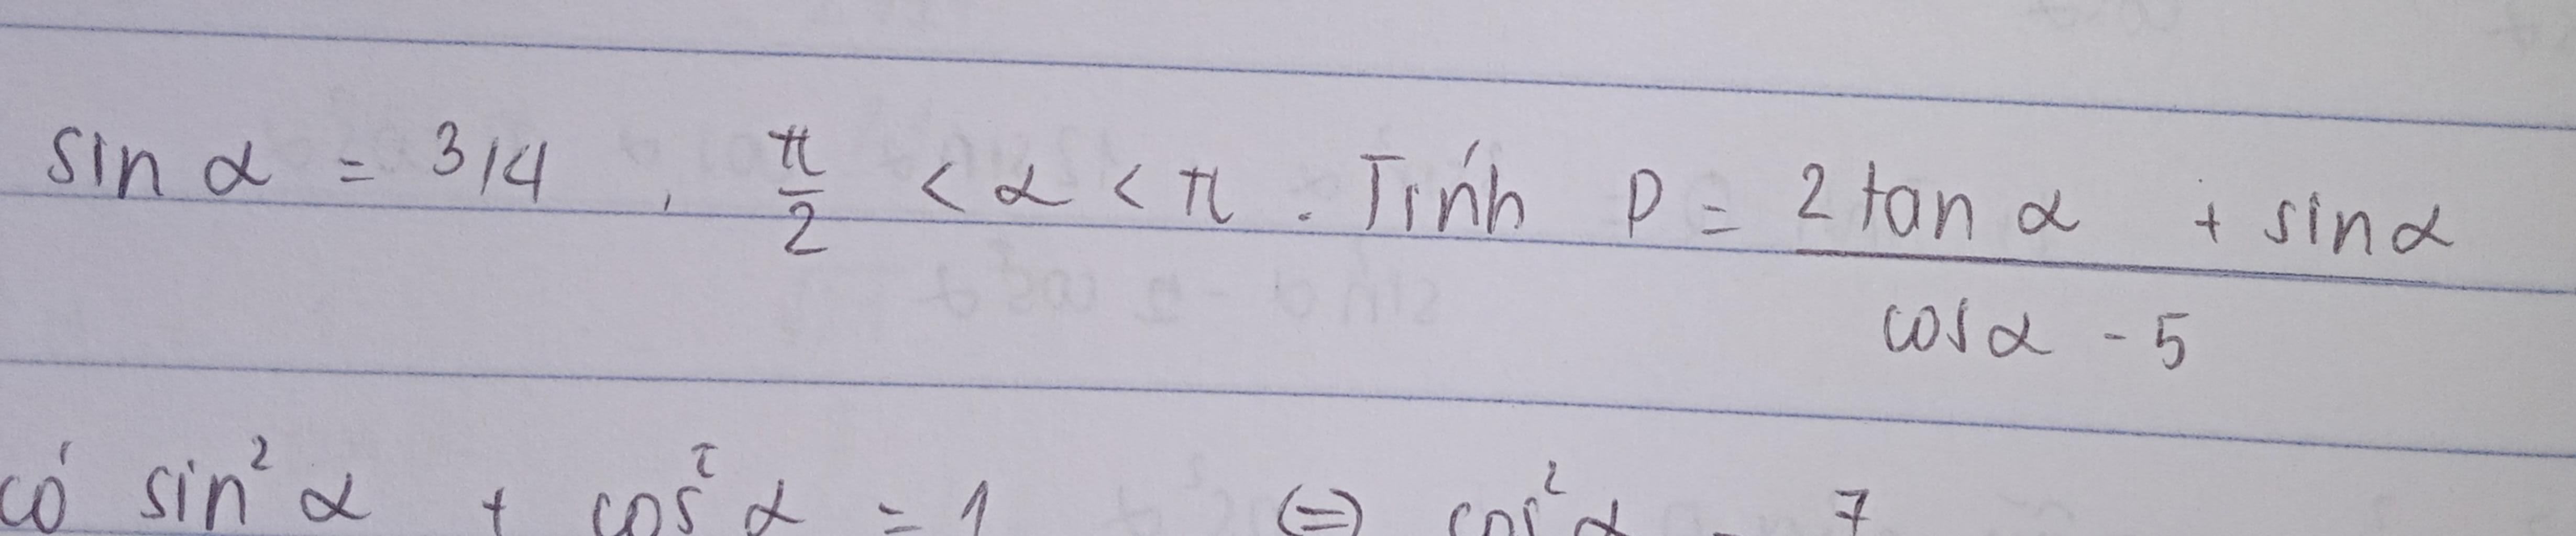 sin α = 3/4 , π/2 < α < π . Tính P = (2 tan α + sin α)/(cos α - 5)
có sin² α + cos² α = 1 (=) cos² α = 7